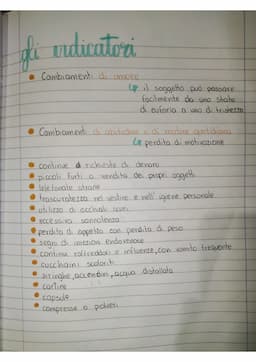 gli indicatori
Cambiamenti di umore
il soggetto può passare
facilmente da uno stato
di euforia a uno di tristezza
Cambiamenti di abitudine e di routine quotidiana
perdita di motivazione
continue richieste di denaro
piccoli furti o vendita dei propri oggetti
telefonate strane
trascuratezza nel vestire e nell'igiene personale
utilizzo di occhiali scuri
eccessiva sonnolenza
perdita di appetito con perdita di peso
segni di iniezioni endovenose
continui raffreddori e influenze, con vomito frequente
cucchiaini scoloriti
siringhe, accendini, acqua distillata
cartine
capsule
compresse o polveri